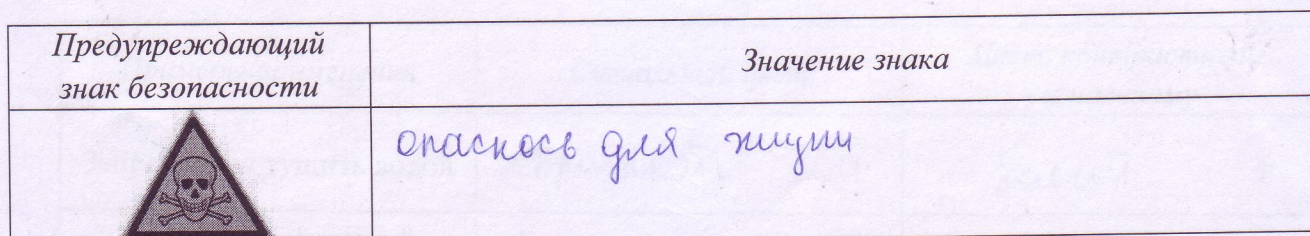 Предупреждающий
знак безопасности
Значение знака
опаснось для жизни